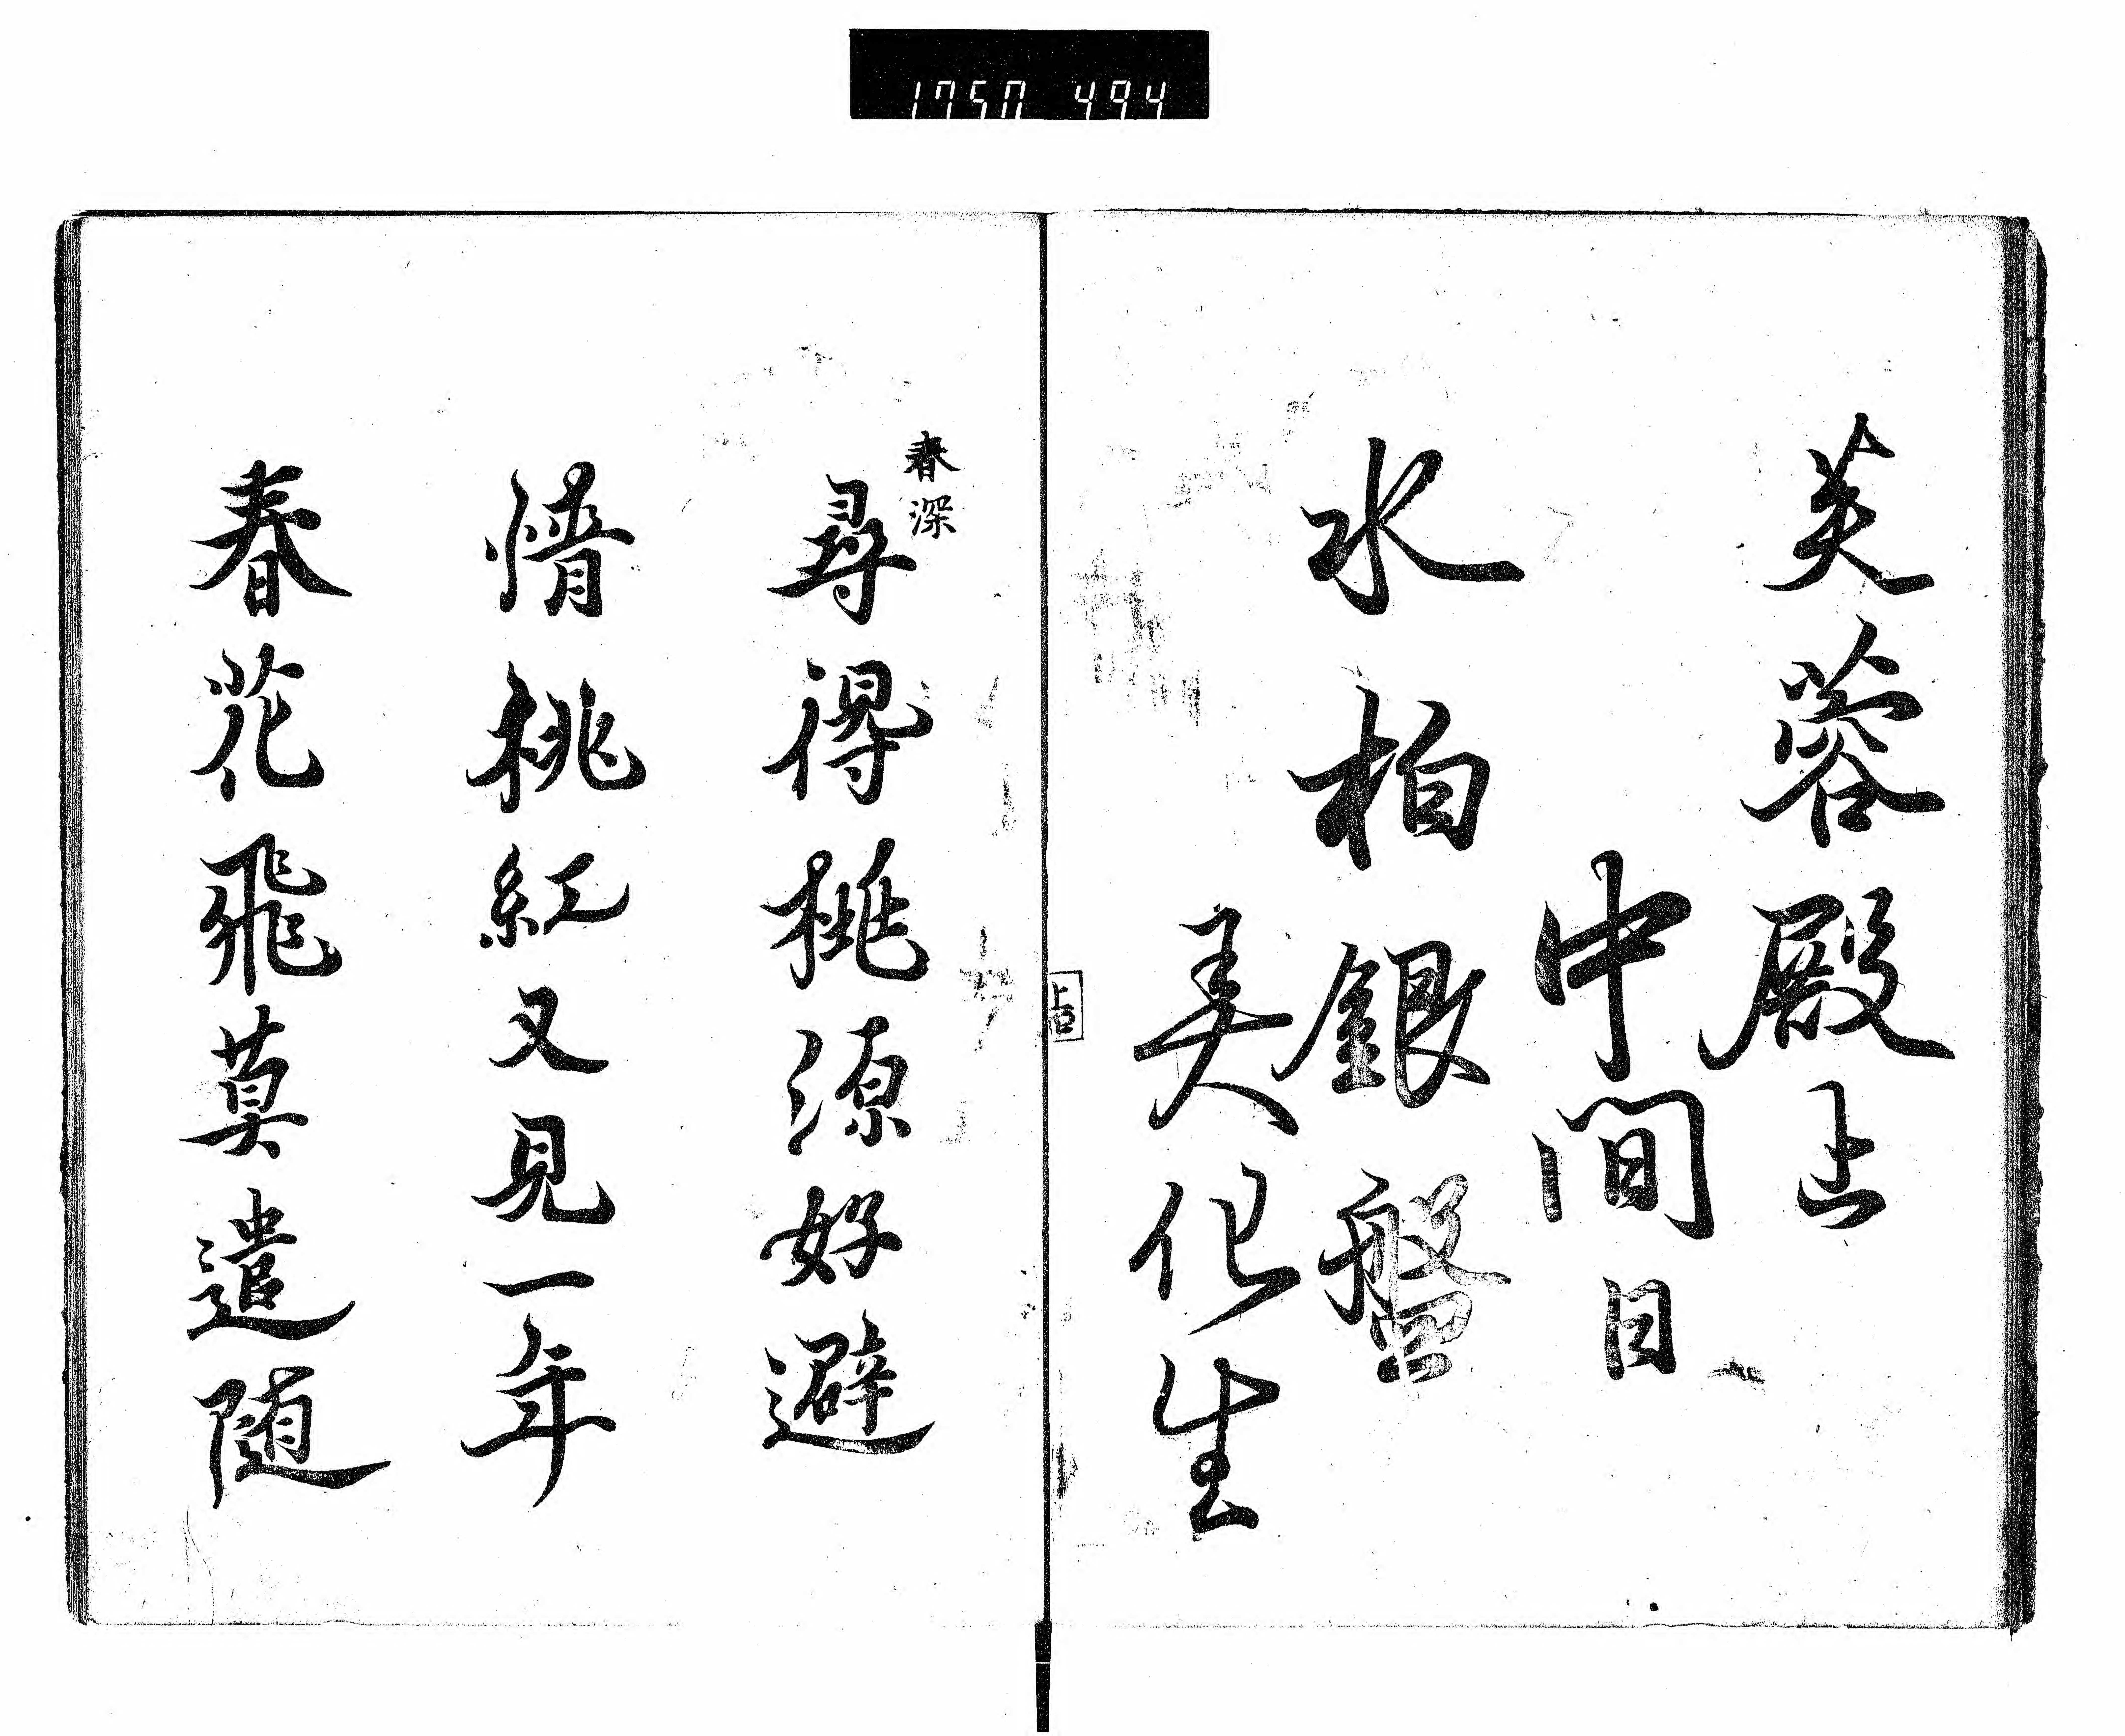 1750 494
芙蓉殿上
中間日
水柏銀盤
美化生
春深
尋得桃源好避
情桃紅又見一年
春花飛莫遣随